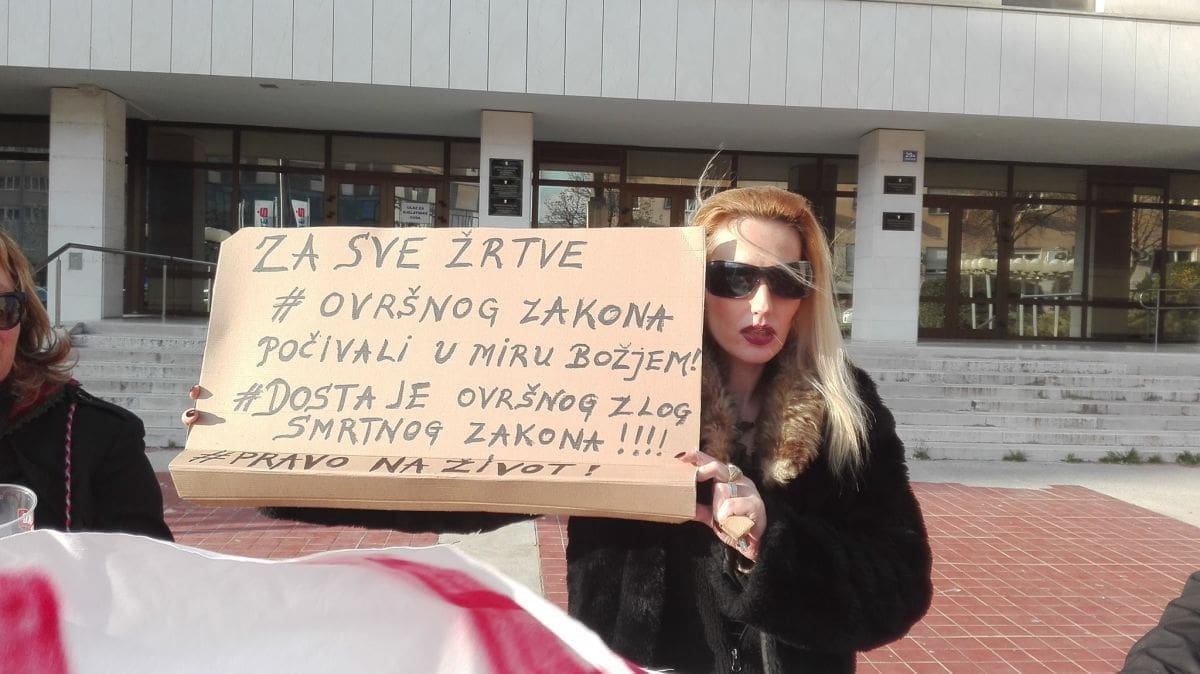 ZA SVE ŽRTVE
# OVRŠNOG ZAKONA
POČIVALI U MIRU BOŽJEM!
#DOSTA JE OVRŠNOG ZLOG
SMRTNOG ZAKONA !!!!
#PRAVO NA ŽIVOT!